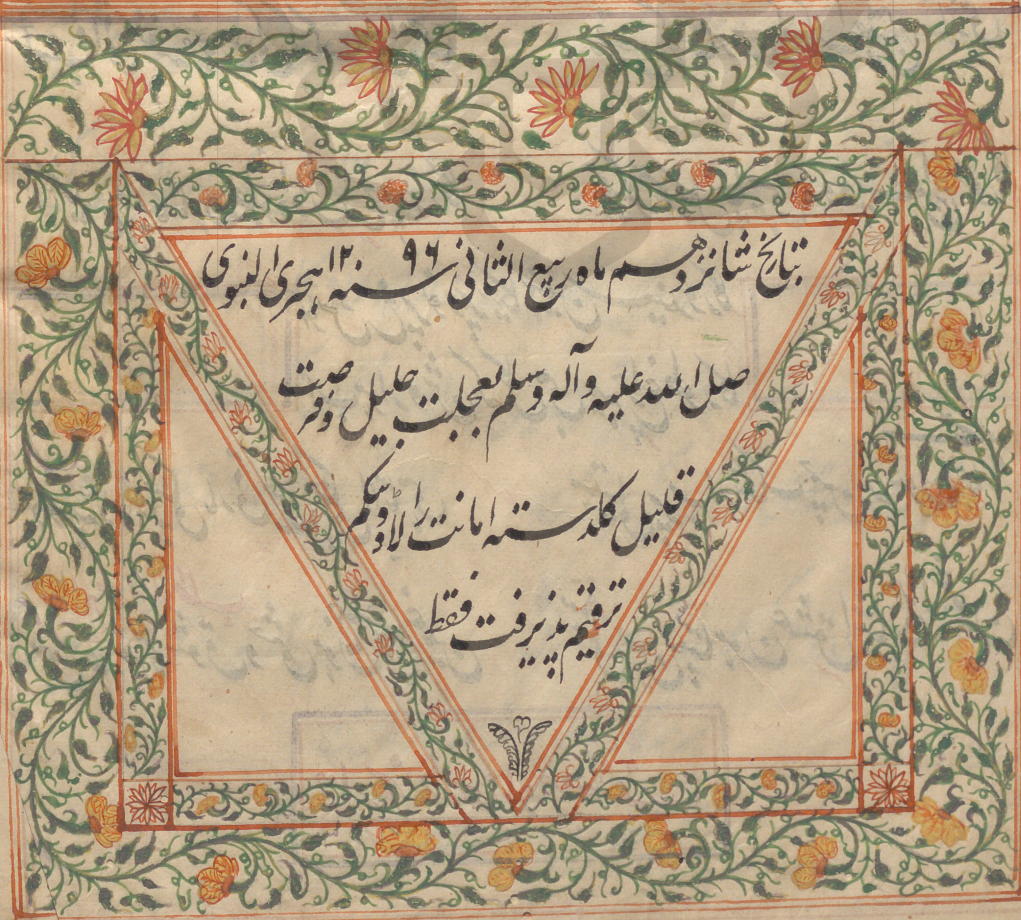 بتاریخ شانزدهم ماه ربیع الثانی سنه ۱۲۹۶ هجری النبوی
صل الله علیه و آله وسلم بعجلت جلیل و فرصت
قلیل گلدسته امانت را لاڈو بیگم
ترقیم پذیرفت فقط